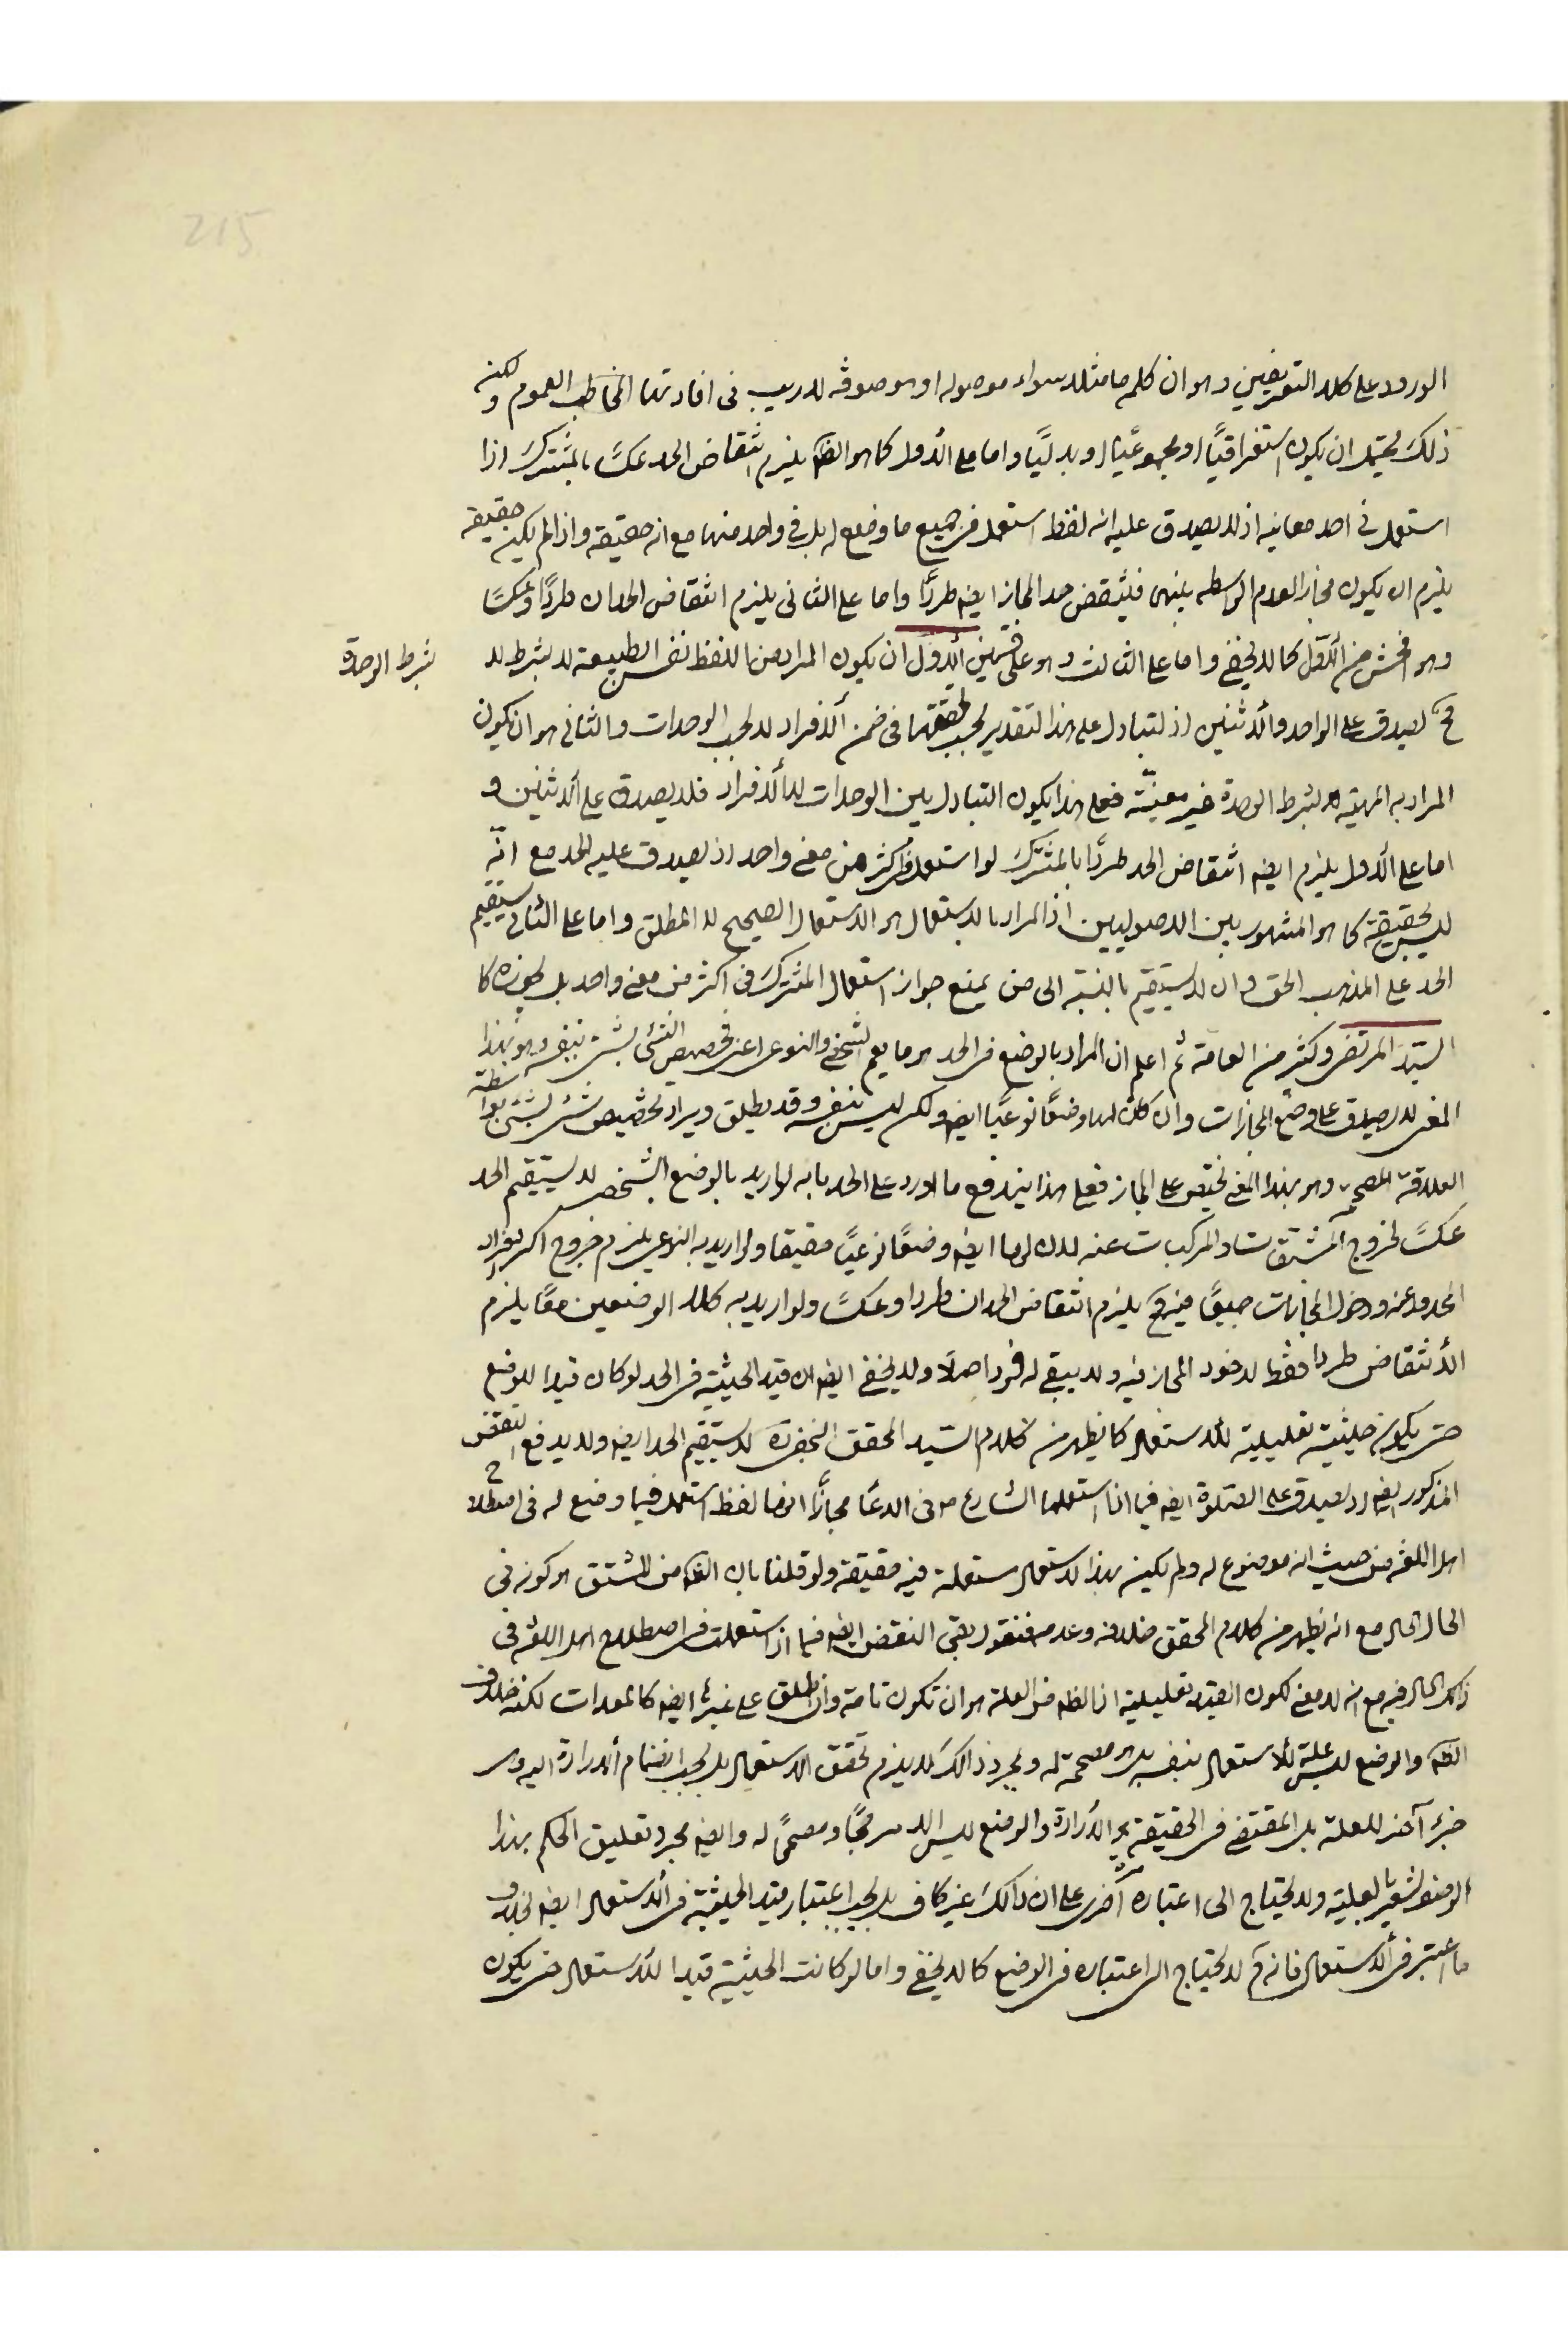 215
الورود على كلا التعريفين وهو ان كلمة ما مثلا سواء موصولة او موصوفة لا ريب فى افادتها المخاطب العموم ولكن
ذلك يحتمل ان يكون استغراقيًا او مجموعيًا او بدليًا واما على الأول كما هو الظ يلزم انتقاض الحد عكسًا بالمشترك اذا
استعمل فى احد معانيه اذ لا يصدق عليه انه لفظ استعمل فى جميع ما وضع له بل فى واحد منها مع انه حقيقة واذا لم يكن حقيقة
يلزم ان يكون مجازا لعدم الواسطه بينهما فينتقض حد المجاز ايض طردًا واما على الثانى يلزم انتقاض الحدان طردًا وعكسًا
وهو افحش من الأول كما لا يخفى واما على الثالث وهو على قسمين الأول ان يكون المراد من اللفظ نفس الطبيعة لا بشرط لا
بشرط الوحدة
فح يصدق على الواحد والأثنين اذ التبادل على هذا التقدير بحسب تحققها فى ضمن الأفراد لا بحسب الوحدات والثانى هو ان يكون
المراد به المهية بشرط الوحدة غير معينة فعلى هذا يكون التبادل بين الوحدات لا الأفراد فلا يصدق على الأثنين و
اما على الأول يلزم ايض انتقاض الحد طردًا بالمشترك لو استعمل فى اكثر من معنى واحد اذ يصدق عليه الحد مع انّه
ليس بحقيقة كما هو المشهور بين الاصوليين اذ المراد بالاستعمال هو الاستعمال الصحيح لا المطلق واما على الثانى يستقيم
الحد على المذهب الحق وان لا يستقيم بالنسبة الى من يمنع جواز استعمال المشترك فى اكثر من معنى واحد بل يجوزه كا
السيد المرتضى وكثير من العامة ثم اعلم ان المراد بالوضع فى الحد هو ما يعم الشخصى والنوعى اعنى تخصيص الشئ بشئ بنفسه وهو بهذا
المعنى لا يصدق على وضع المجازات وان كان لها وضعًا نوعيًا ايض ولكن ليس بنفسه وقد يطلق ويراد تخصيص شئ بشئ بواسطة
العلاقة المصححة وهو بهذا المعنى يختص على المجاز فعلى هذا يندفع ما اورد على الحد بانه لو اريد بالوضع الشخصى لا يستقيم الحد
عكسًا لخروج المشتقات والمركبات عنه لان لها ايض وضعًا نوعيًا حقيقا ولو اريد به النوعى يلزم خروج اكثر افراد
المحدود عنه ودخول المجازات جميعًا فيه فح يلزم انتقاض الحدان طردا وعكسًا ولو اريد به كلا الوضعين معًا يلزم
الأنتقاض طردا فقط لدخول المجاز فيه ولا يبقى له فرد اصلًا ولا يخفى ايض ان قيد الحيثية فى الحد لو كان قيدا للوضع
حتى يكون حيثية تعليلية للأستعمال كما يظهر من كلام السيد المحقق لا يستقيم الحد ايض ولا يدفع النقض
المذكور ايض اذ يصدق على الصلوة ايض فيما اذا استعملها الشارع فى الدعا مجازًا انها لفظ استعمل فيما وضع له فى اصطلاح
اهل اللغة من حيث انه موضوع له ولم يكن بهذا الاستعمال مستعملة فيه حقيقة ولو قلنا بان الظ من المشتق هو كونه فى
الحال الحال مع انه يظهر من كلام المحقق خلافه وعدمه فنقول بقى النقض ايض فيما اذا استعملت فى اصطلاح اهل اللغة فى
ذلك الحال فيه مع انه لا معنى لكون القيد تعليلية اذ الظ من العلة هو ان تكون تامة وان اطلق على غيرها ايض كالمعدات لكنه خلاف
الظ والوضع ليس علة للأستعمال بنفسه بل هو مصححة له وبمجرد ذالك لا يلزم تحقق الاستعمال بل يجب انضمام الأرادة اليه وهى
جزء آخر للعلة بل المقتضى فى الحقيقة هى الأرادة والوضع ليس الا مرجحًا ومصححًا له وايض بمجرد تعليق الحكم بهذا
الوصف يشعر بالعلية ولا يحتاج الى اعتباره مرة اخرى على ان ذالك غير كاف بل يجب اعتبار قيد الحيثية فى الأستعمال ايض بخلاف
ما اعتبر فى الأستعمال فانه ح لا يحتاج الى اعتباره فى الوضع كما لا يخفى واما لو كانت الحيثية قيدا للأستعمال حتى يكون